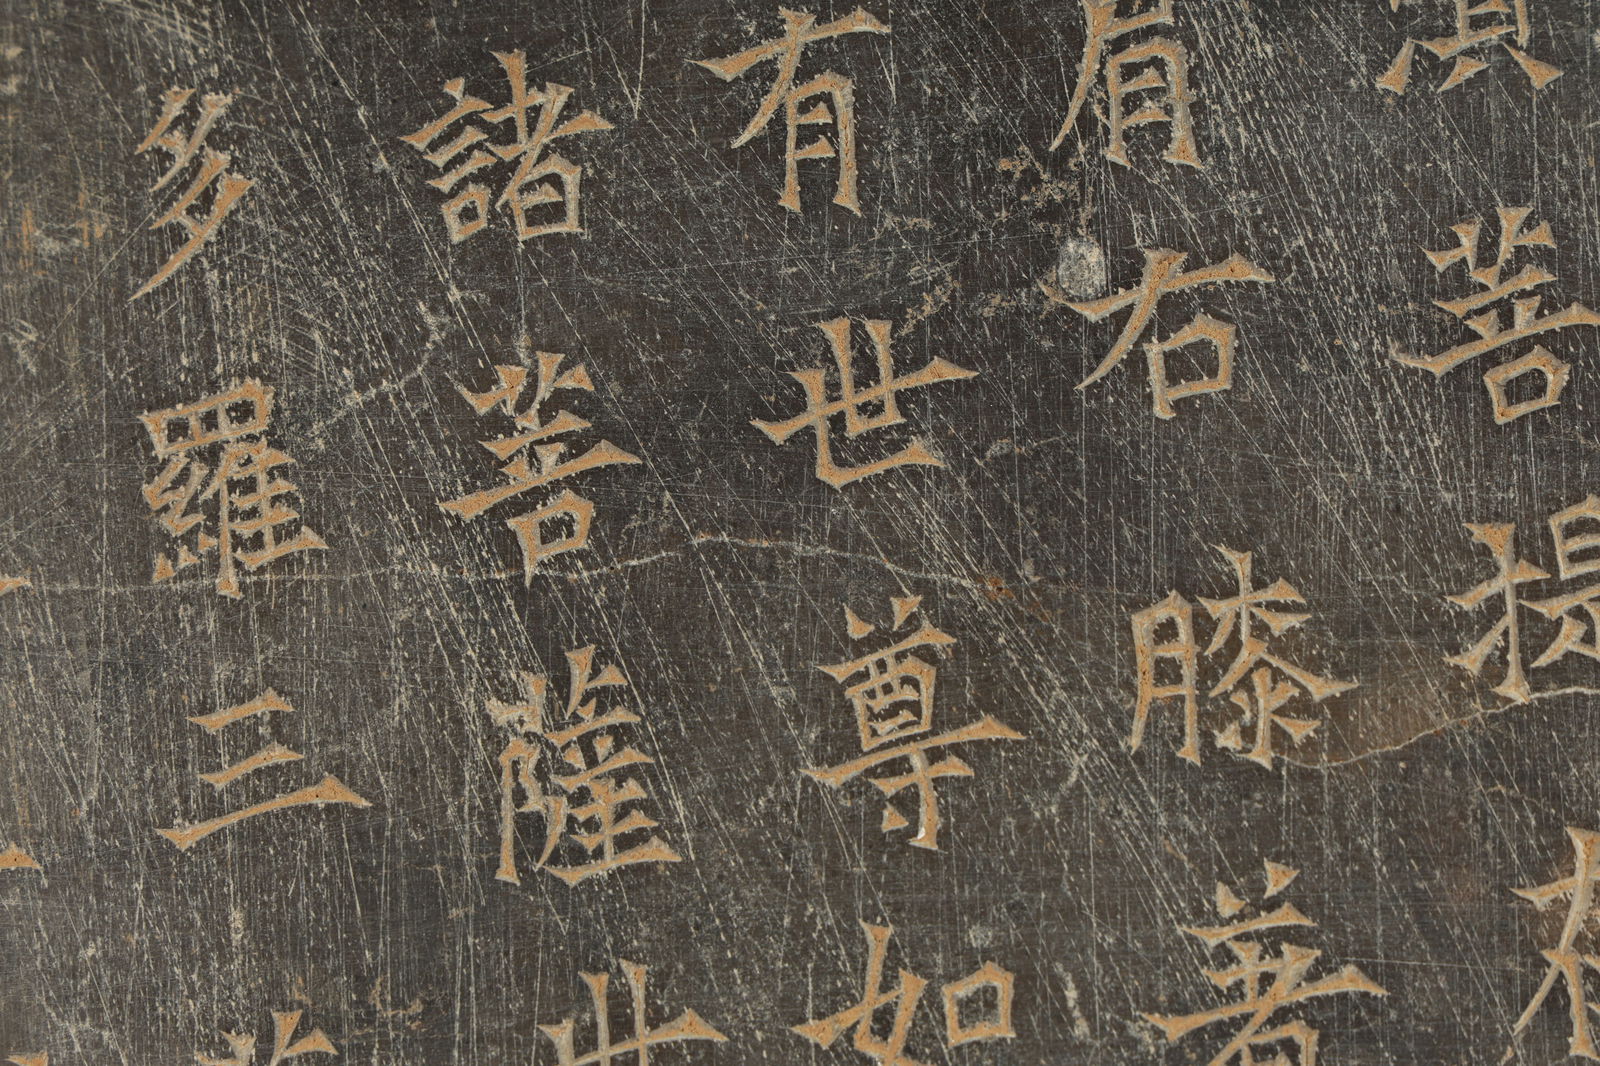 菩提
肩右膝著
有世尊如
諸菩薩
多羅三